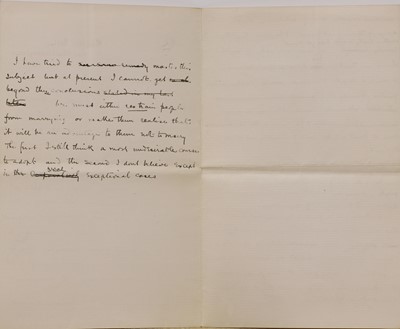 I have tried to master this
subject but at present I cannot get
beyond the conclusions stated in my last
letter we must either restrain people
from marrying or make them realise that
it will be an advantage to them not to marry
The first I still think a most undesirable course
to adopt and the second I dont believe except
in the really exceptional cases